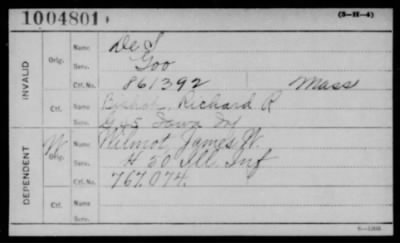 1004801
(3-H-4)
INVALID
Orig.
Name De S
Serv. Goo
Ctf. No. 861392 Mass
Ctf.
Name Bishop, Richard R
Serv. G 45 Iowa Inf
DEPENDENT
W
Orig.
Name Wilmot James W.
Serv. H 50 Ill. Inf
Ctf. No. 767.074.
Ctf.
Name
Serv.